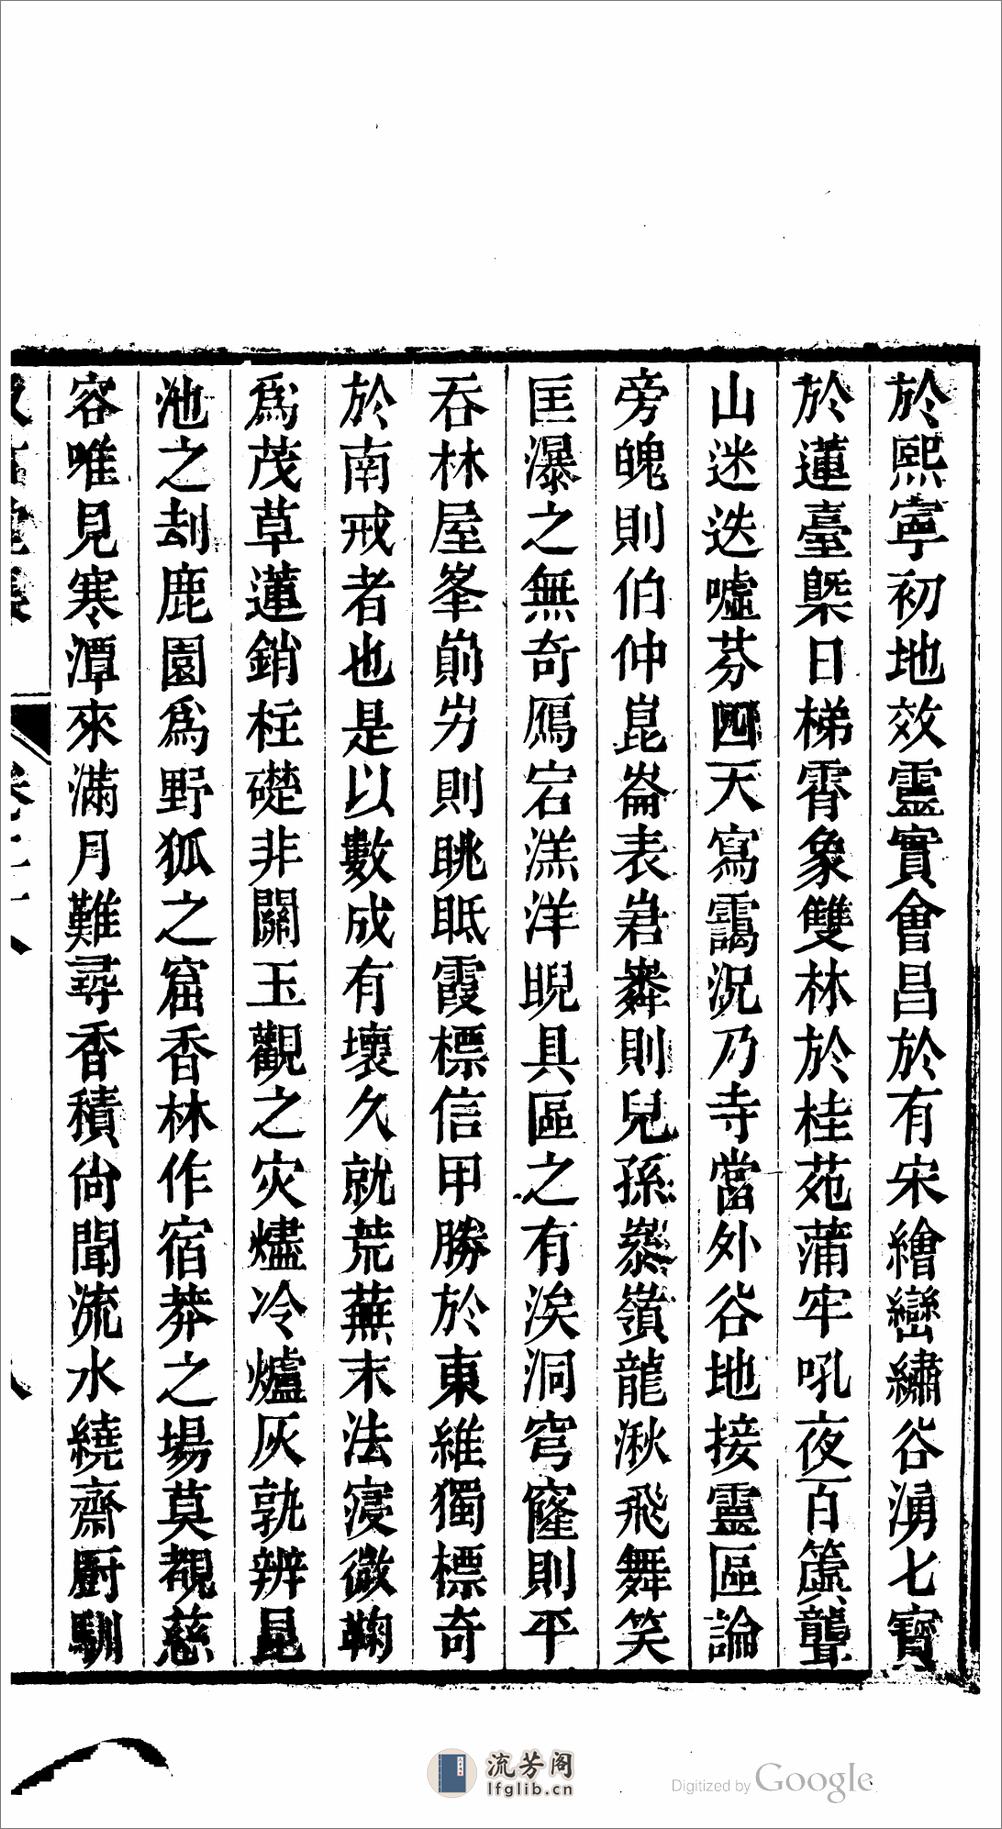 於熙寧初地效靈實會昌於有宋繪巒繡谷湧七寶
於蓮臺槷日梯霄象雙林於桂苑蒲牢吼夜百簴聾
山迷迭噓芬四天寫靄況乃寺當外谷地接靈區論
旁魄則伯仲崑崙表岧粦則兒孫嶽嶺龍湫飛舞笑
匡瀑之無奇鴈宕漾洋睨具區之有涘洞穹窿則平
吞林屋峯崱屴則眺眡霞標信甲勝於東維獨標奇
於南戒者也是以數成有壞久就荒蕪末法寖微鞠
爲茂草蓮銷柱礎非關玉觀之灾燼冷爐灰孰辨昆
池之刦鹿園爲野狐之窟香林作宿莽之場莫覩慈
容唯見寒潭來滿月難尋香積尙聞流水繞齋厨馴
卷二十八
流芳阁
lfglib.cn
Digitized by Google